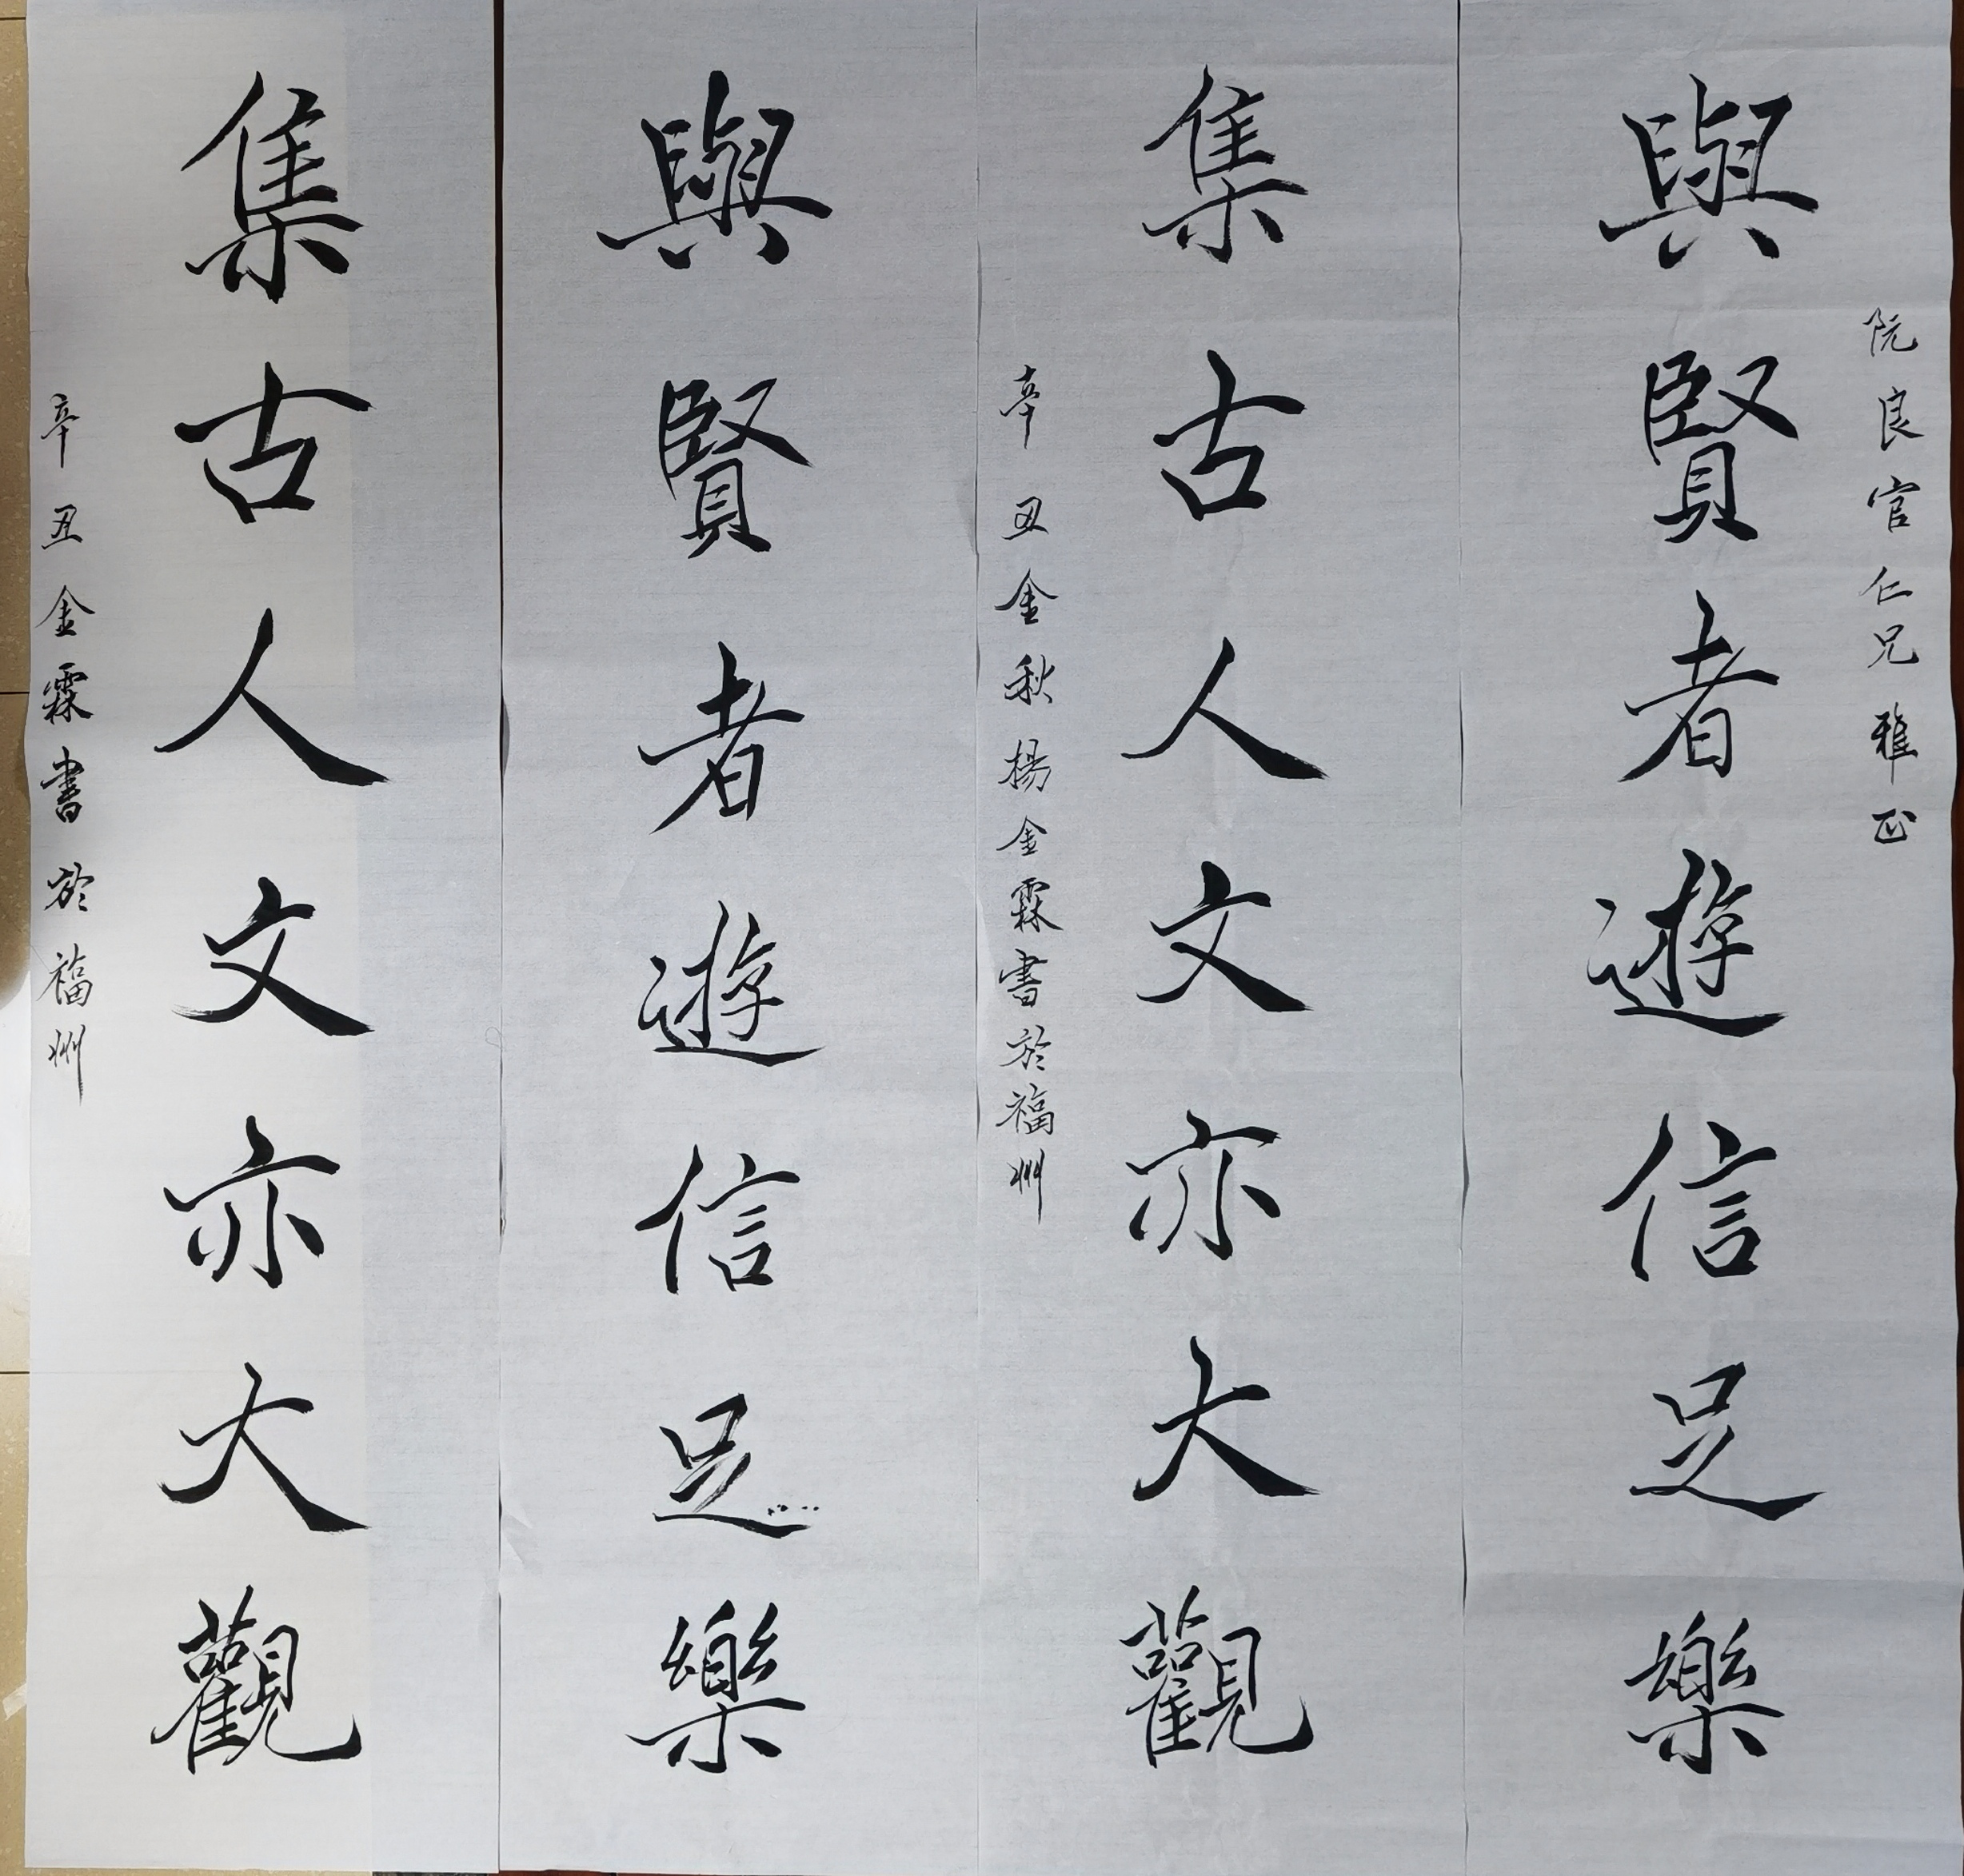 阮良官仁兄雅正
與賢者遊信足樂
集古人文亦大觀
辛丑金秋楊金霖書於福州
與賢者遊信足樂
集古人文亦大觀
辛丑金霖書於福州